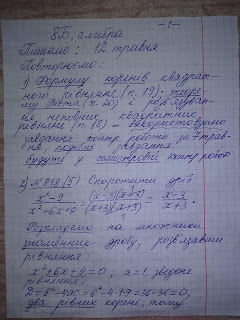 -1-
8Б, алгебра
Пишемо: 12 травня
Повторюємо:
1) Формулу коренів квадрат-
ного рівняння (п. 19), теоре-
му Вієта (п. 20) і розв'язуван-
ня неповних квадратних
рівнянь (п. 18) -
завдання контр. роботи за 7 трав-
ня, подібні завдання
будуть у семестровій контр. роботі
2) (5) Скоротити дріб
x²-9 / x²+6x+9 = (x-3)(x+3) / (x+3)(x+3) = x-3 / x+3.
Розкладемо на множники
знаменник дробу, розв'язавши
рівняння:
x²+6x+9=0, a=1, зведене
рівняння,
D=b²-4ac=6²-4·1·9=36-36=0,
два рівних корені, тому